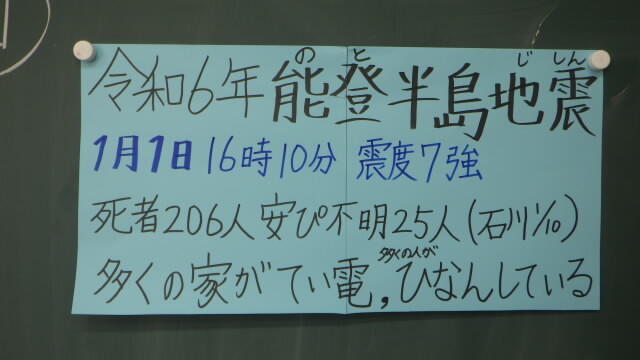 のと じしん
令和6年 能登半島地震
1月1日 16時10分 震度7強
死者206人 安ぴ不明25人(石川1/10)
多くの人が
多くの家がてい電,ひなんしている